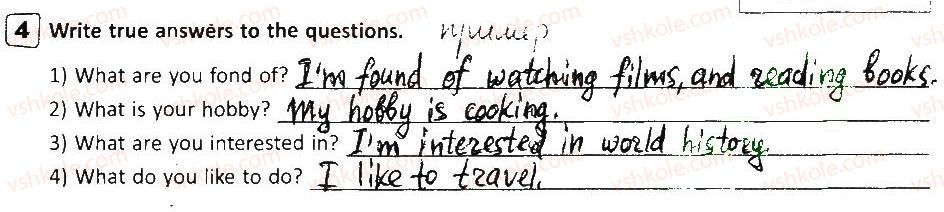 4 Write true answers to the questions. пример
1) What are you fond of? I'm found of watching films, and reading books.
2) What is your hobby? My hobby is cooking.
3) What are you interested in? I'm interested in world history.
4) What do you like to do? I like to travel.